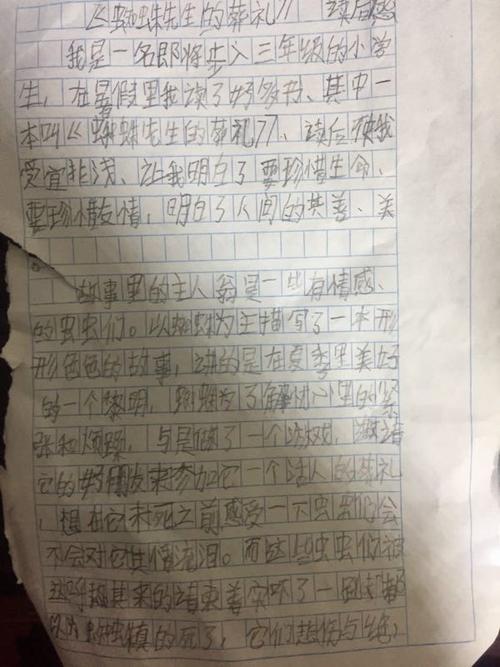 《蜘蛛先生的葬礼》 读后感
我是一名即将步入三年级的小学
生，在暑假里我读了好多书、其中一
本叫《蜘蛛先生的葬礼》、读后使我
受宜非浅、让我明白了要珍惜生命、
要珍惜友情，明白了人间的真善、美
故事里的主人翁是一些有情感、
的虫虫们。以蜘蛛为主描写了一本形
形色色的故事，讲的是在夏季里美好
的一个黎明，蜘蛛为了解内心里的紧
张和烦躁，与是做了一个游戏，邀请
它的好朋友来参加它一个活人的葬礼
，想在它未死之前感受一下虫虫们会
不会对它失情流泪。而这些虫虫们被
这呼 其来的 了
以为蜘蛛真的死了，它们悲伤与绝